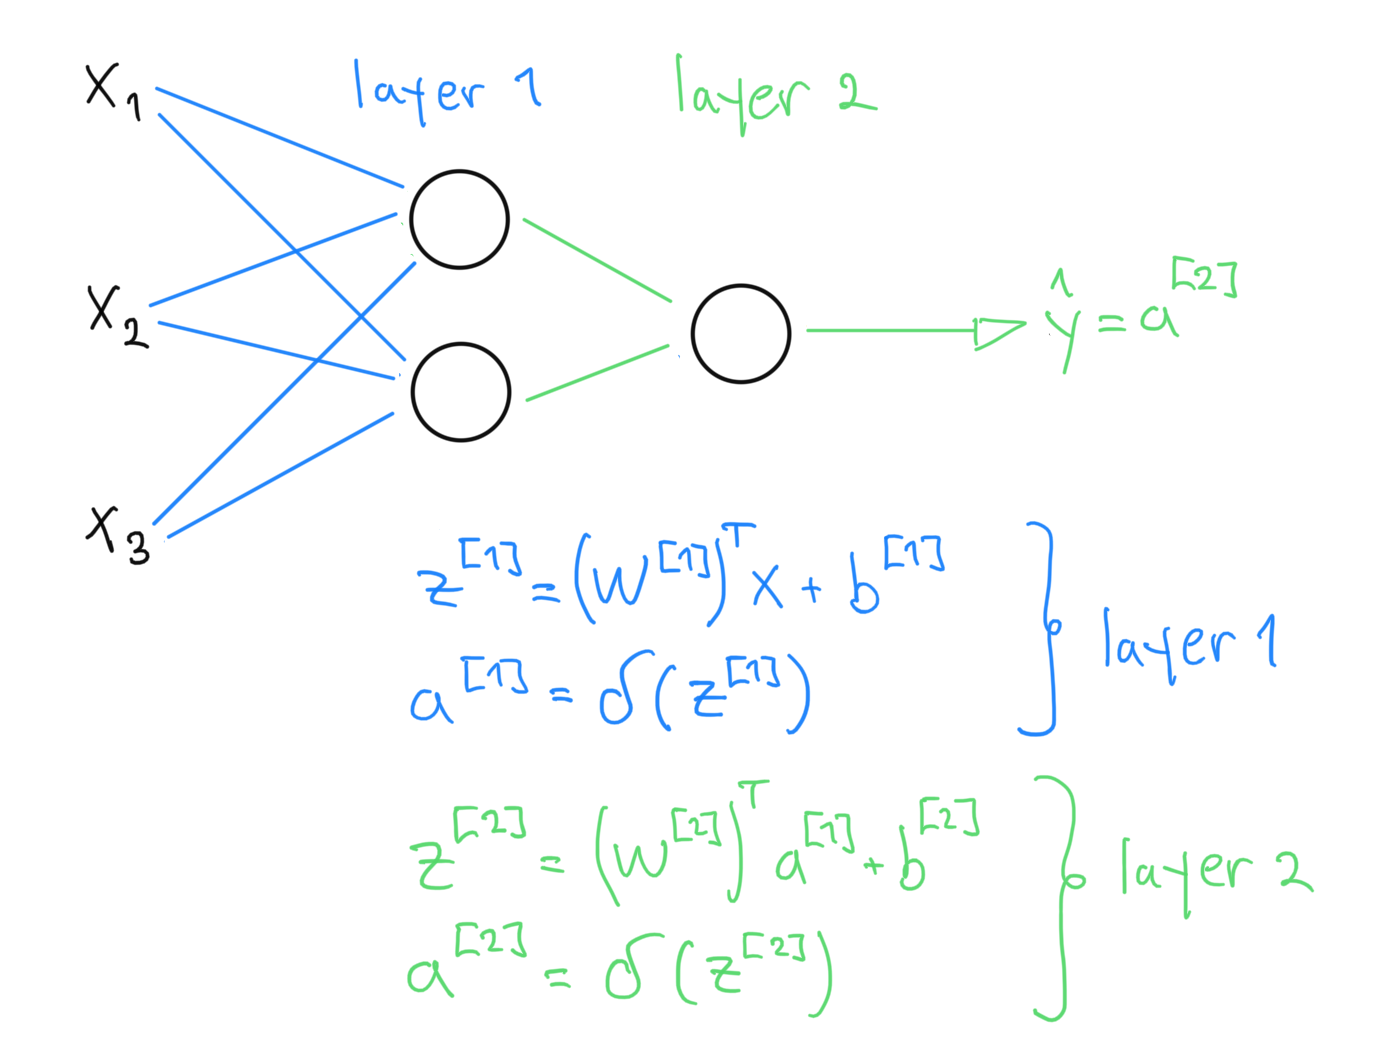 layer 1
layer 2
x₁
x₂
ŷ = a^[2]
x₃
z^[1] = (W^[1])^T x + b^[1]
a^[1] = σ(z^[1])
layer 1
z^[2] = (W^[2])^T a^[1] + b^[2]
a^[2] = σ(z^[2])
layer 2